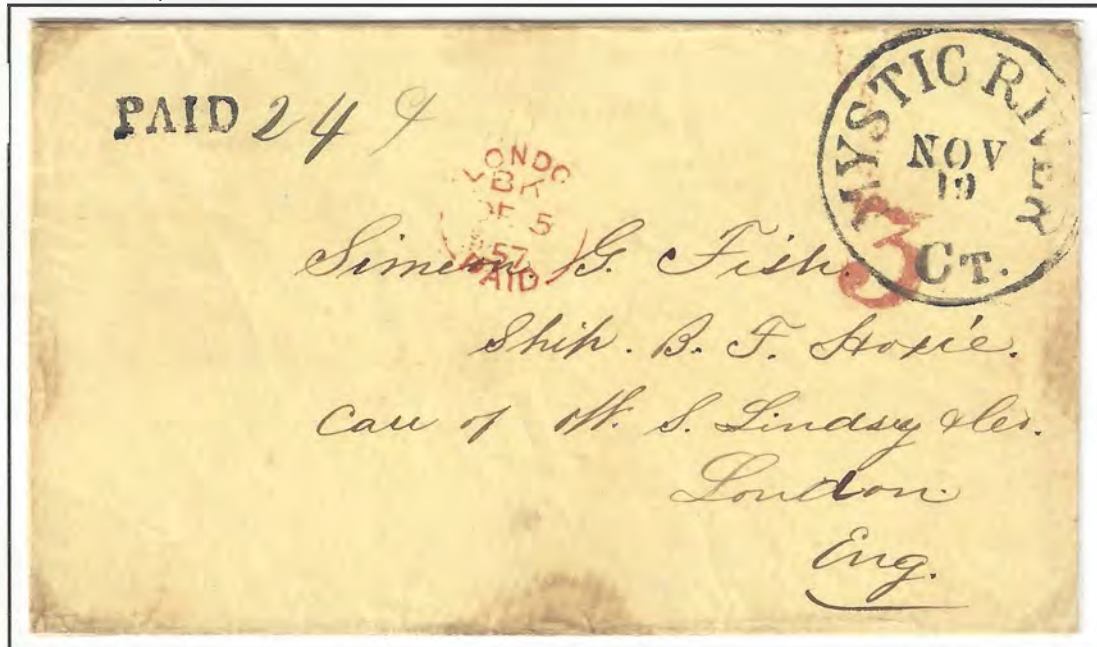 PAID 24 ¢
MYSTIC RIVER
NOV
19
CT.
3
LONDO
BK
DE 5
57
PAID
Simeon. G. Fish.
Ship. B. F. Hoxie.
Care of W. S. Lindsy & Co.
London.
Eng.